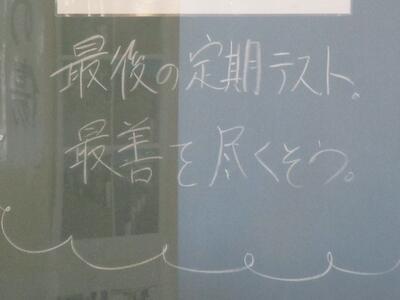 最後の定期テスト。
最善を尽くそう。